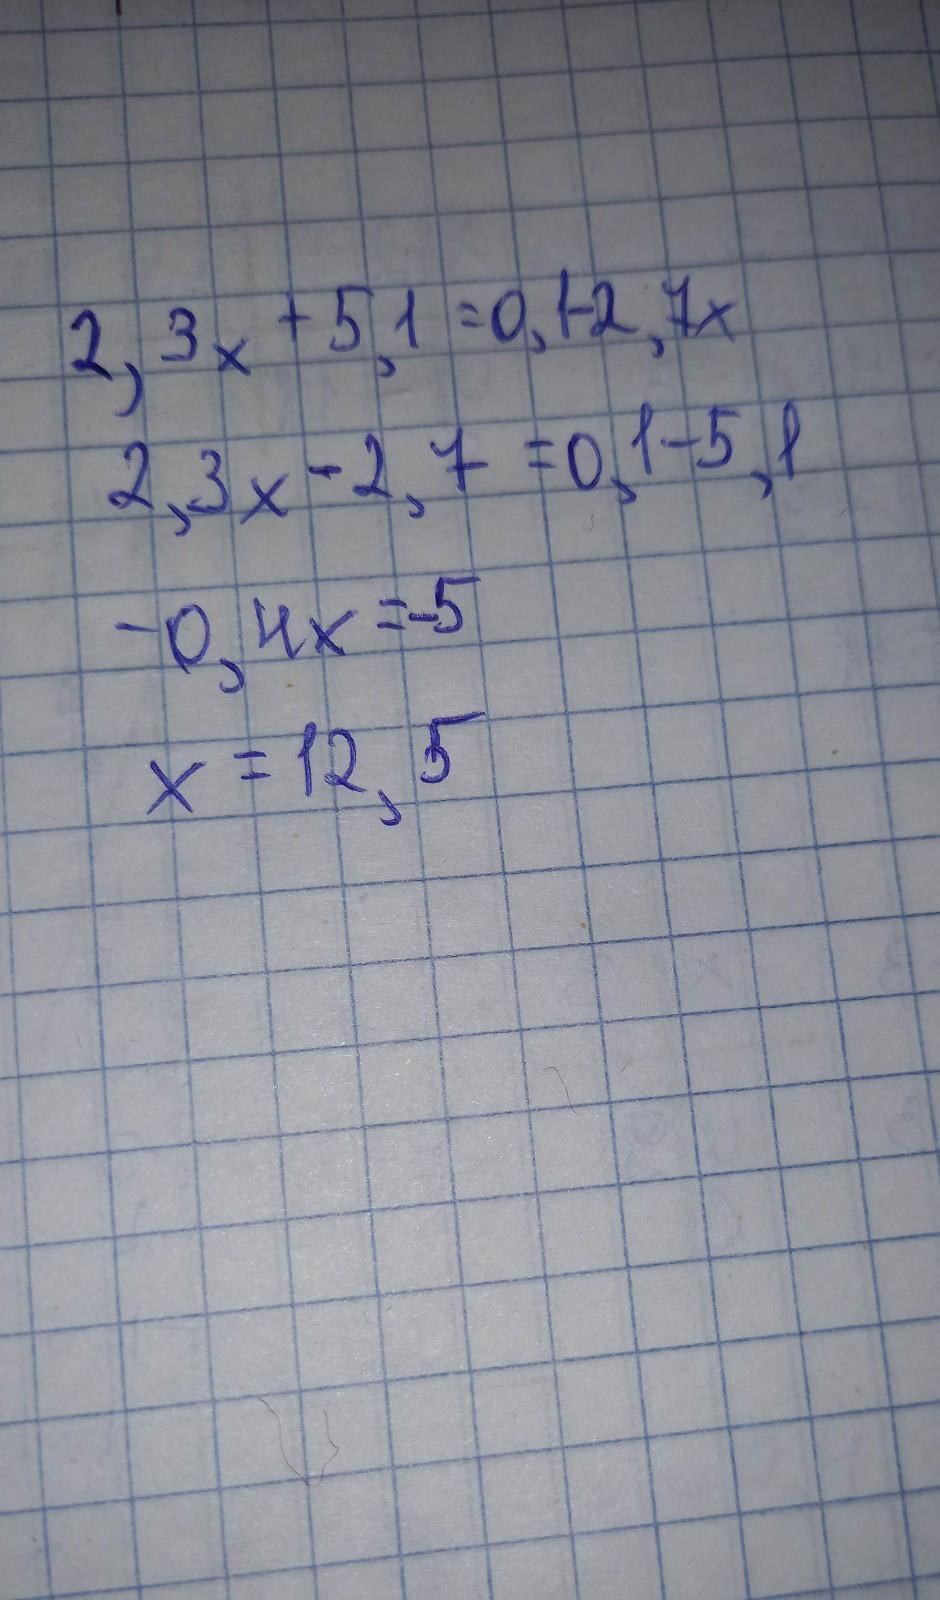 2,3x+5,1=0,1-2,7x
2,3x-2,7=0,1-5,1
-0,4x=-5
x=12,5